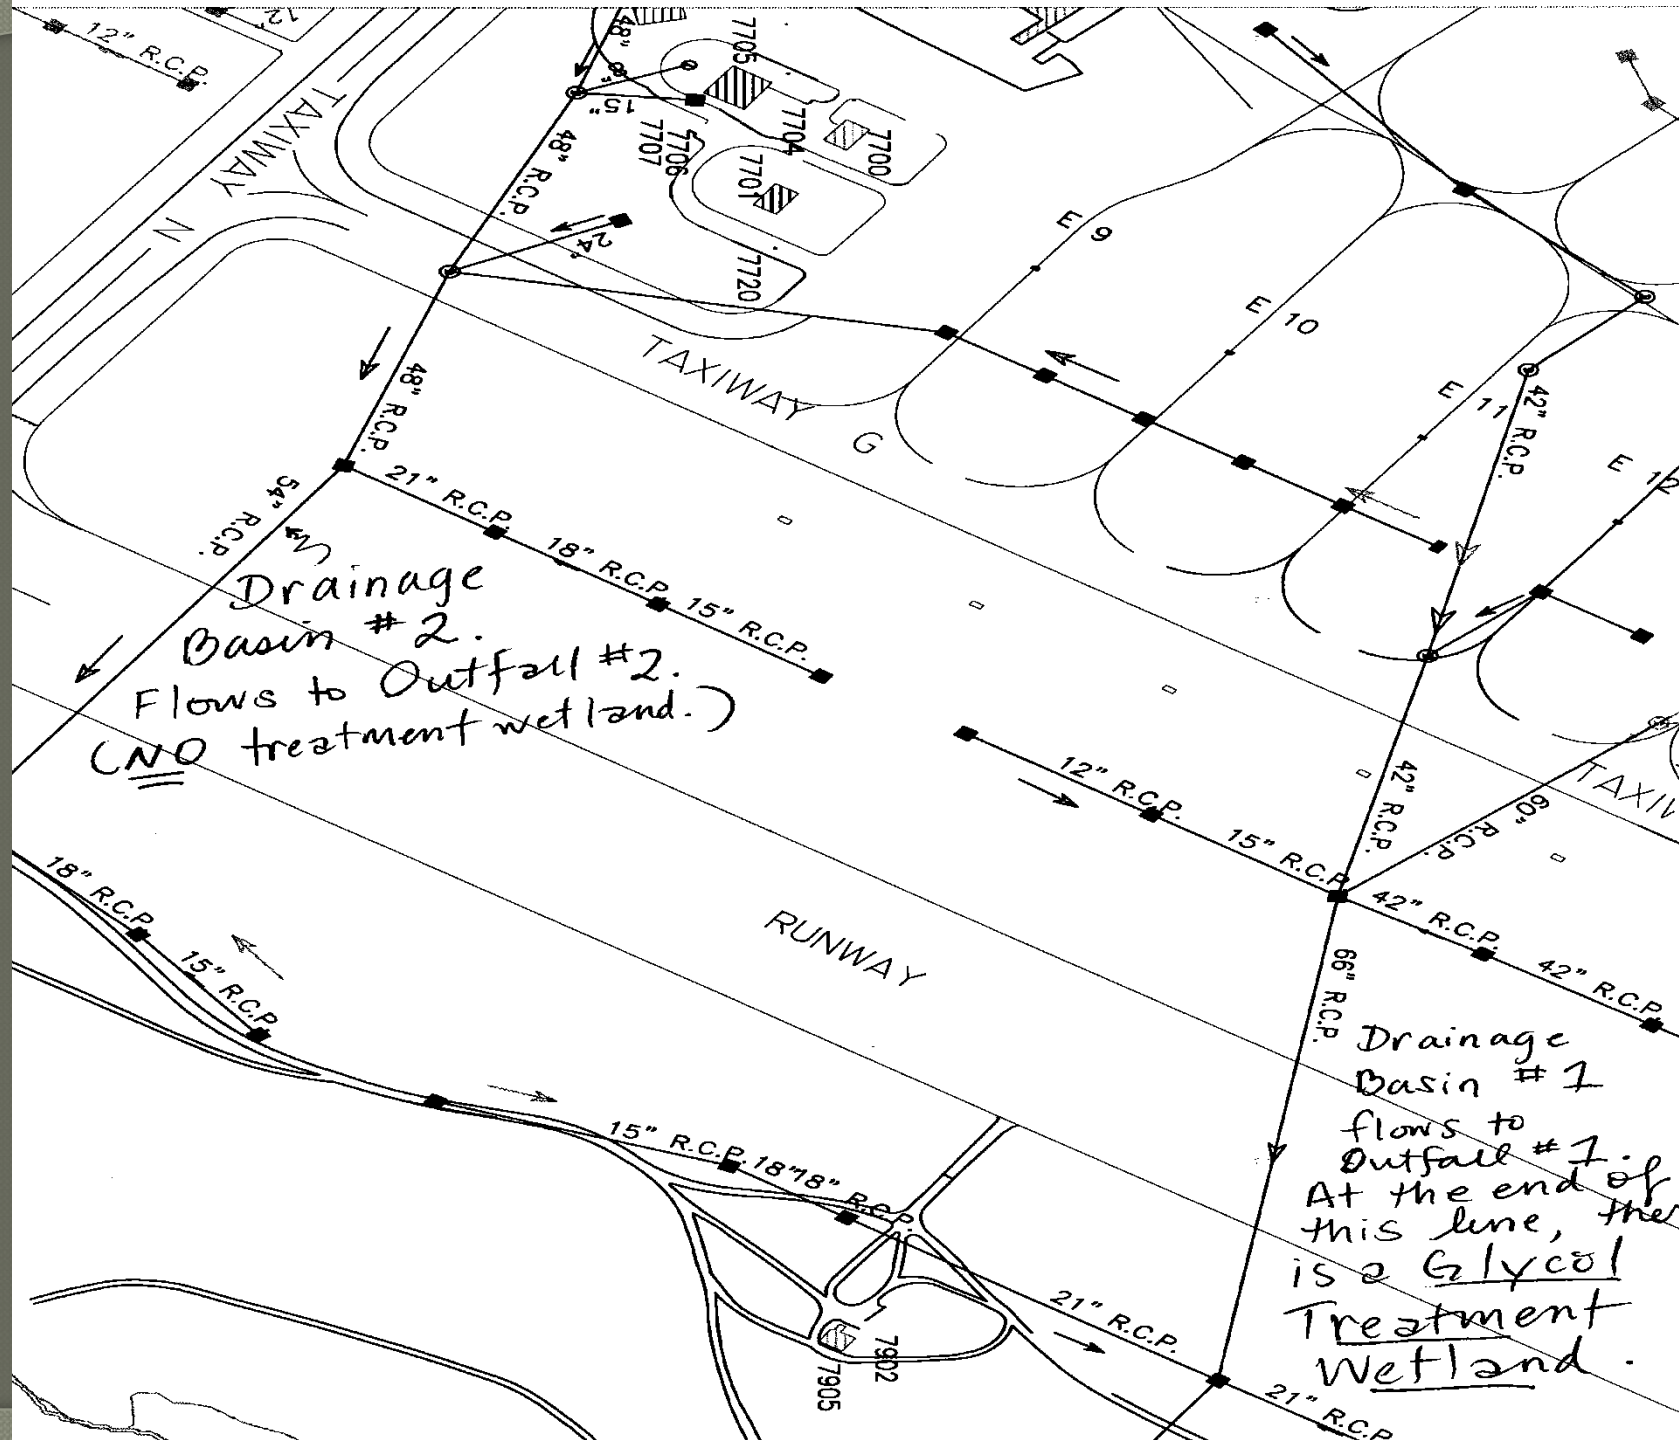 12"
12" R.C.P.
48"
7705
15"
7704
7700
7706
7707
7701
48" R.C.P.
TAXIWAY N
24"
7720
E 9
E 10
E 11
E 12
TAXIWAY G
42" R.C.P.
48" R.C.P.
54" R.C.P.
21" R.C.P.
18" R.C.P.
15" R.C.P.
Drainage
Basin #2.
Flows to Outfall #2.
(NO treatment wetland.)
12" R.C.P.
15" R.C.P.
42" R.C.P.
60" R.C.P.
TAXIW
42" R.C.P.
42" R.C.P.
18" R.C.P.
15" R.C.P.
RUNWAY
66" R.C.P.
Drainage
Basin #1
flows to
Outfall #1.
At the end of
this line, there
is a Glycol
Treatment
Wetland.
15" R.C.P.
18"
18" R.C.P.
21" R.C.P.
7902
7905
21" R.C.P.